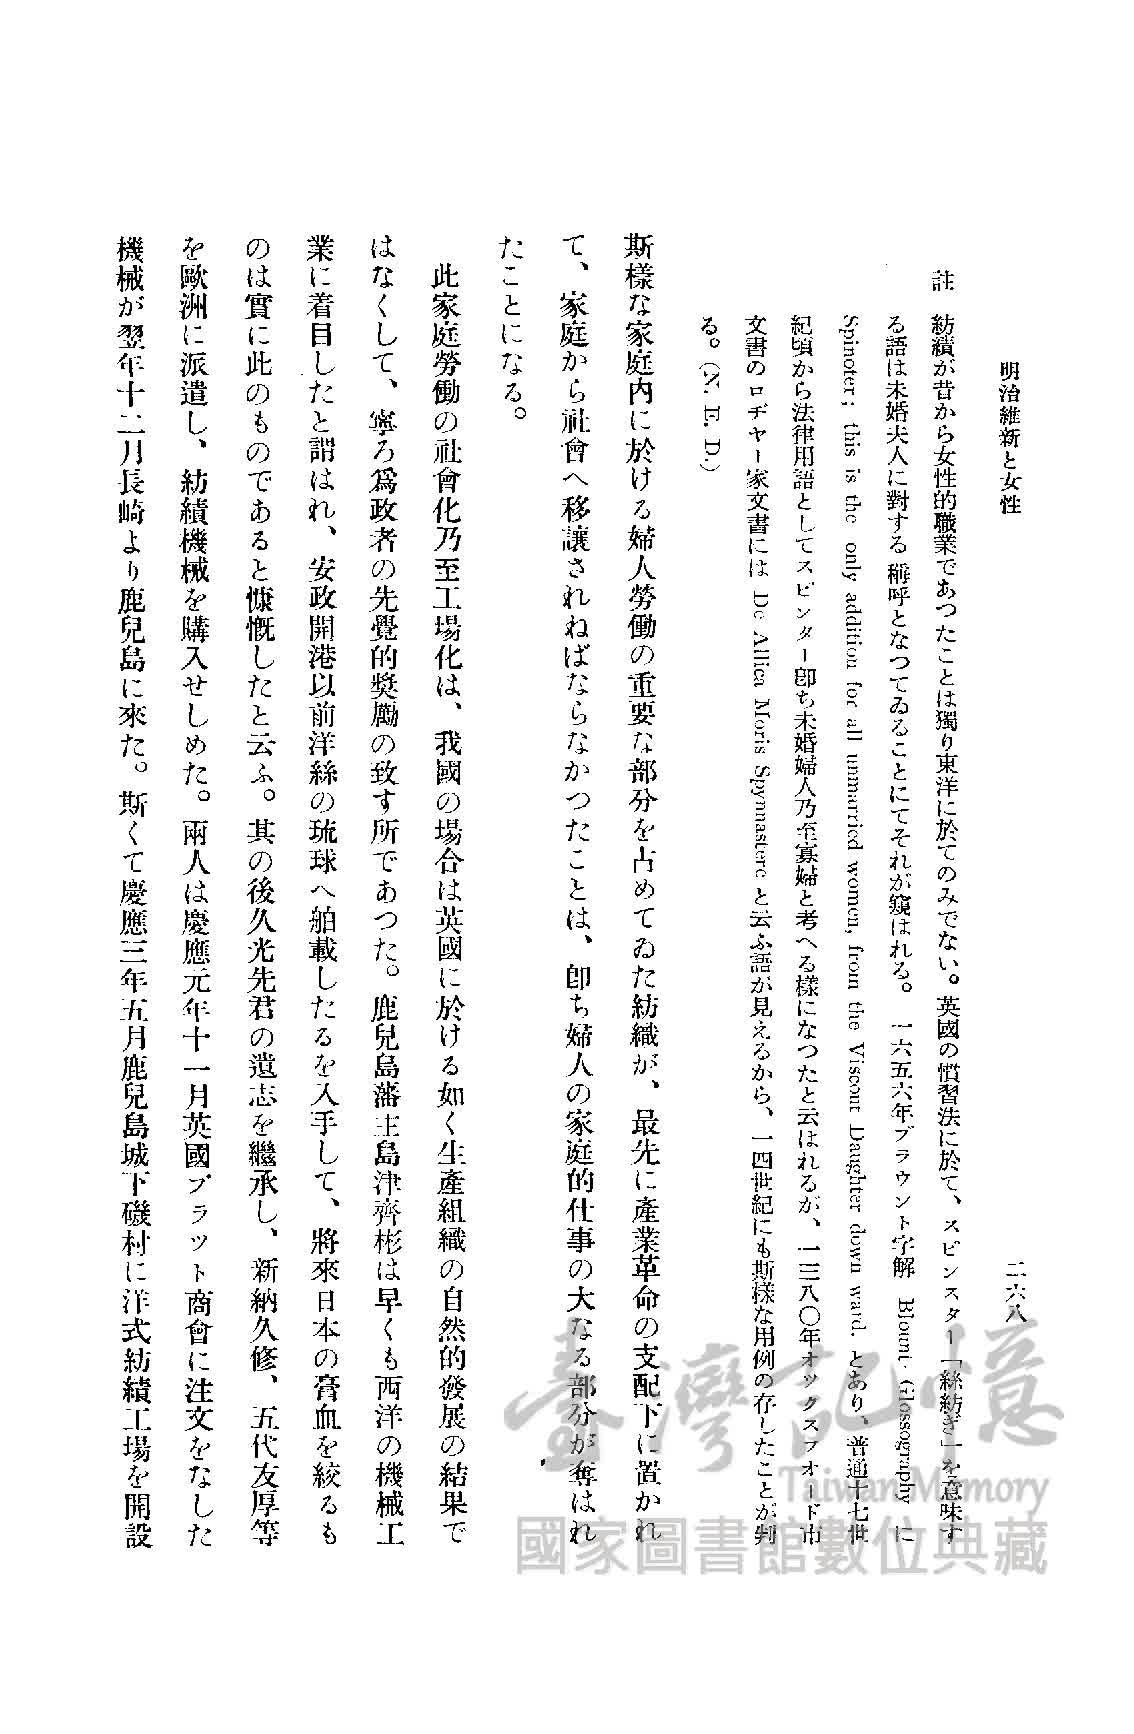 明治維新と女性
二六八
註 紡績が昔から女性的職業であつたことは獨り東洋に於てのみでない。英國の慣習法に於て、スピンスター「絲紡ぎ」を意味す
る語は未婚夫人に對する稱呼となつてゐることにてそれが窺はれる。一六五六年ブラウント字解 Blount, Glossography に
Spinoter; this is the only addition for all unmarried women, from the Viscout Daughter down ward. とあり、普通十七世
紀頃から法律用語としてスピンター卽ち未婚婦人乃至寡婦と考へる樣になつたと云はれるが、一三八〇年オックスフォード市
文書のロヂャー家文書には De Allica Moris Spynnastere と云ふ語が見えるから、一四世紀にも斯樣な用例の存したことが判
る。(N. E. D.)
斯樣な家庭內に於ける婦人勞働の重要な部分を占めてゐた紡織が、最先に產業革命の支配下に置かれ
て、家庭から社會へ移讓されねばならなかつたことは、卽ち婦人の家庭的仕事の大なる部分が奪はれ
たことになる。
此家庭勞働の社會化乃至工場化は、我國の場合は英國に於ける如く生產組織の自然的發展の結果で
はなくして、寧ろ爲政者の先覺的獎勵の致す所であつた。鹿兒島藩主島津齊彬は早くも西洋の機械工
業に着目したと謂はれ、安政開港以前洋絲の琉球へ舶載したるを入手して、將來日本の膏血を絞るも
のは實に此のものであると慷慨したと云ふ。其の後久光先君の遺志を繼承し、新納久修、五代友厚等
を歐洲に派遣し、紡績機械を購入せしめた。兩人は慶應元年十一月英國プラット商會に注文をなした
機械が翌年十二月長崎より鹿兒島に來た。斯くて慶應三年五月鹿兒島城下磯村に洋式紡績工場を開設
臺灣記憶
Taiwan Memory
國家圖書館數位典藏